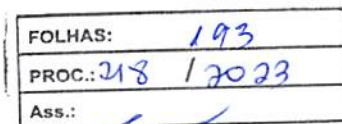 FOLHAS: 193
PROC.: 218 / 2023
Ass.: